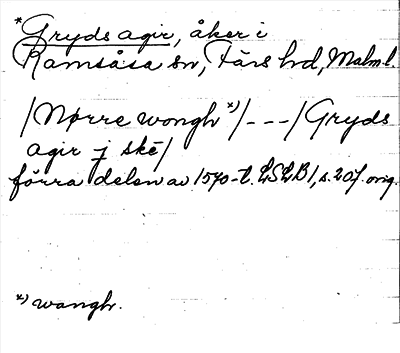 *Gryds agir, åker i
Ramsåsa sn, Färs hd, Malm l.
/Nørre wongh *)/ - - - / Gryds
agir j ske/
förra delen av 1570-t. LSLB 1, s. 207. orig.
*) wangh.